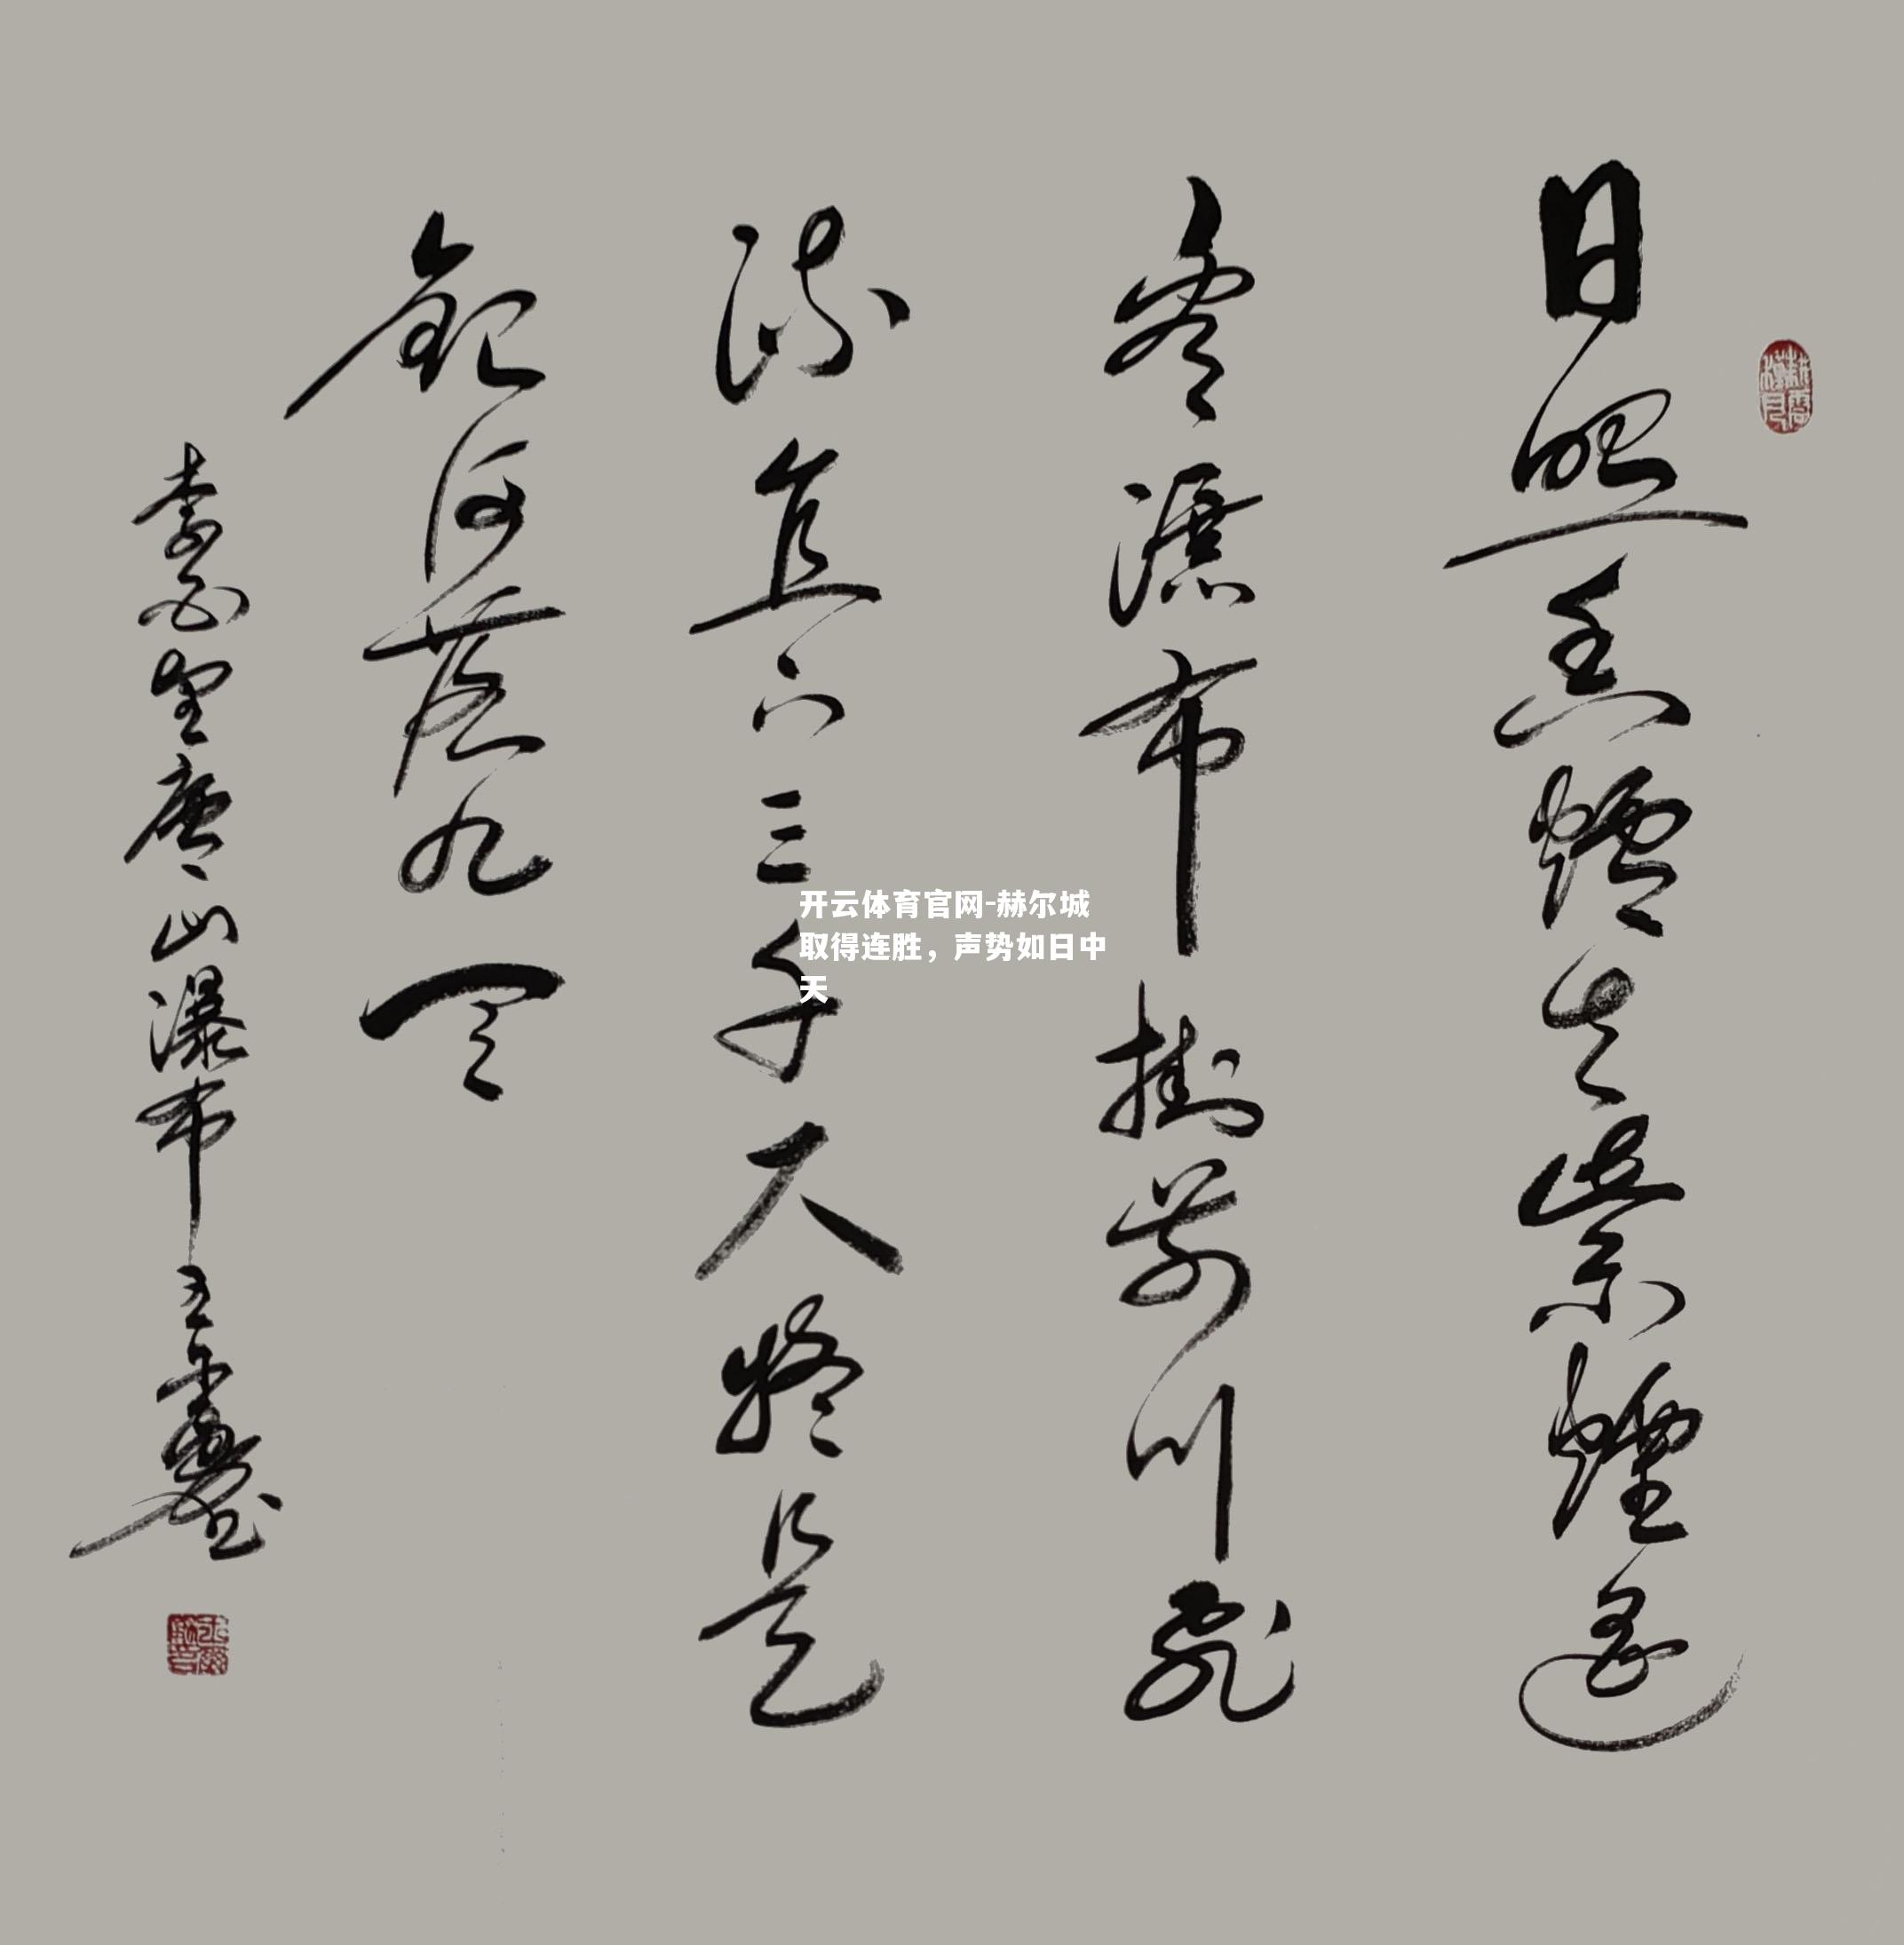 日照香爐生紫煙遥
看瀑布掛前川飛
流直下三千尺疑是
銀河落九天
李白望廬山瀑布
开云体育官网-赫尔城
取得连胜，声势如日中
天